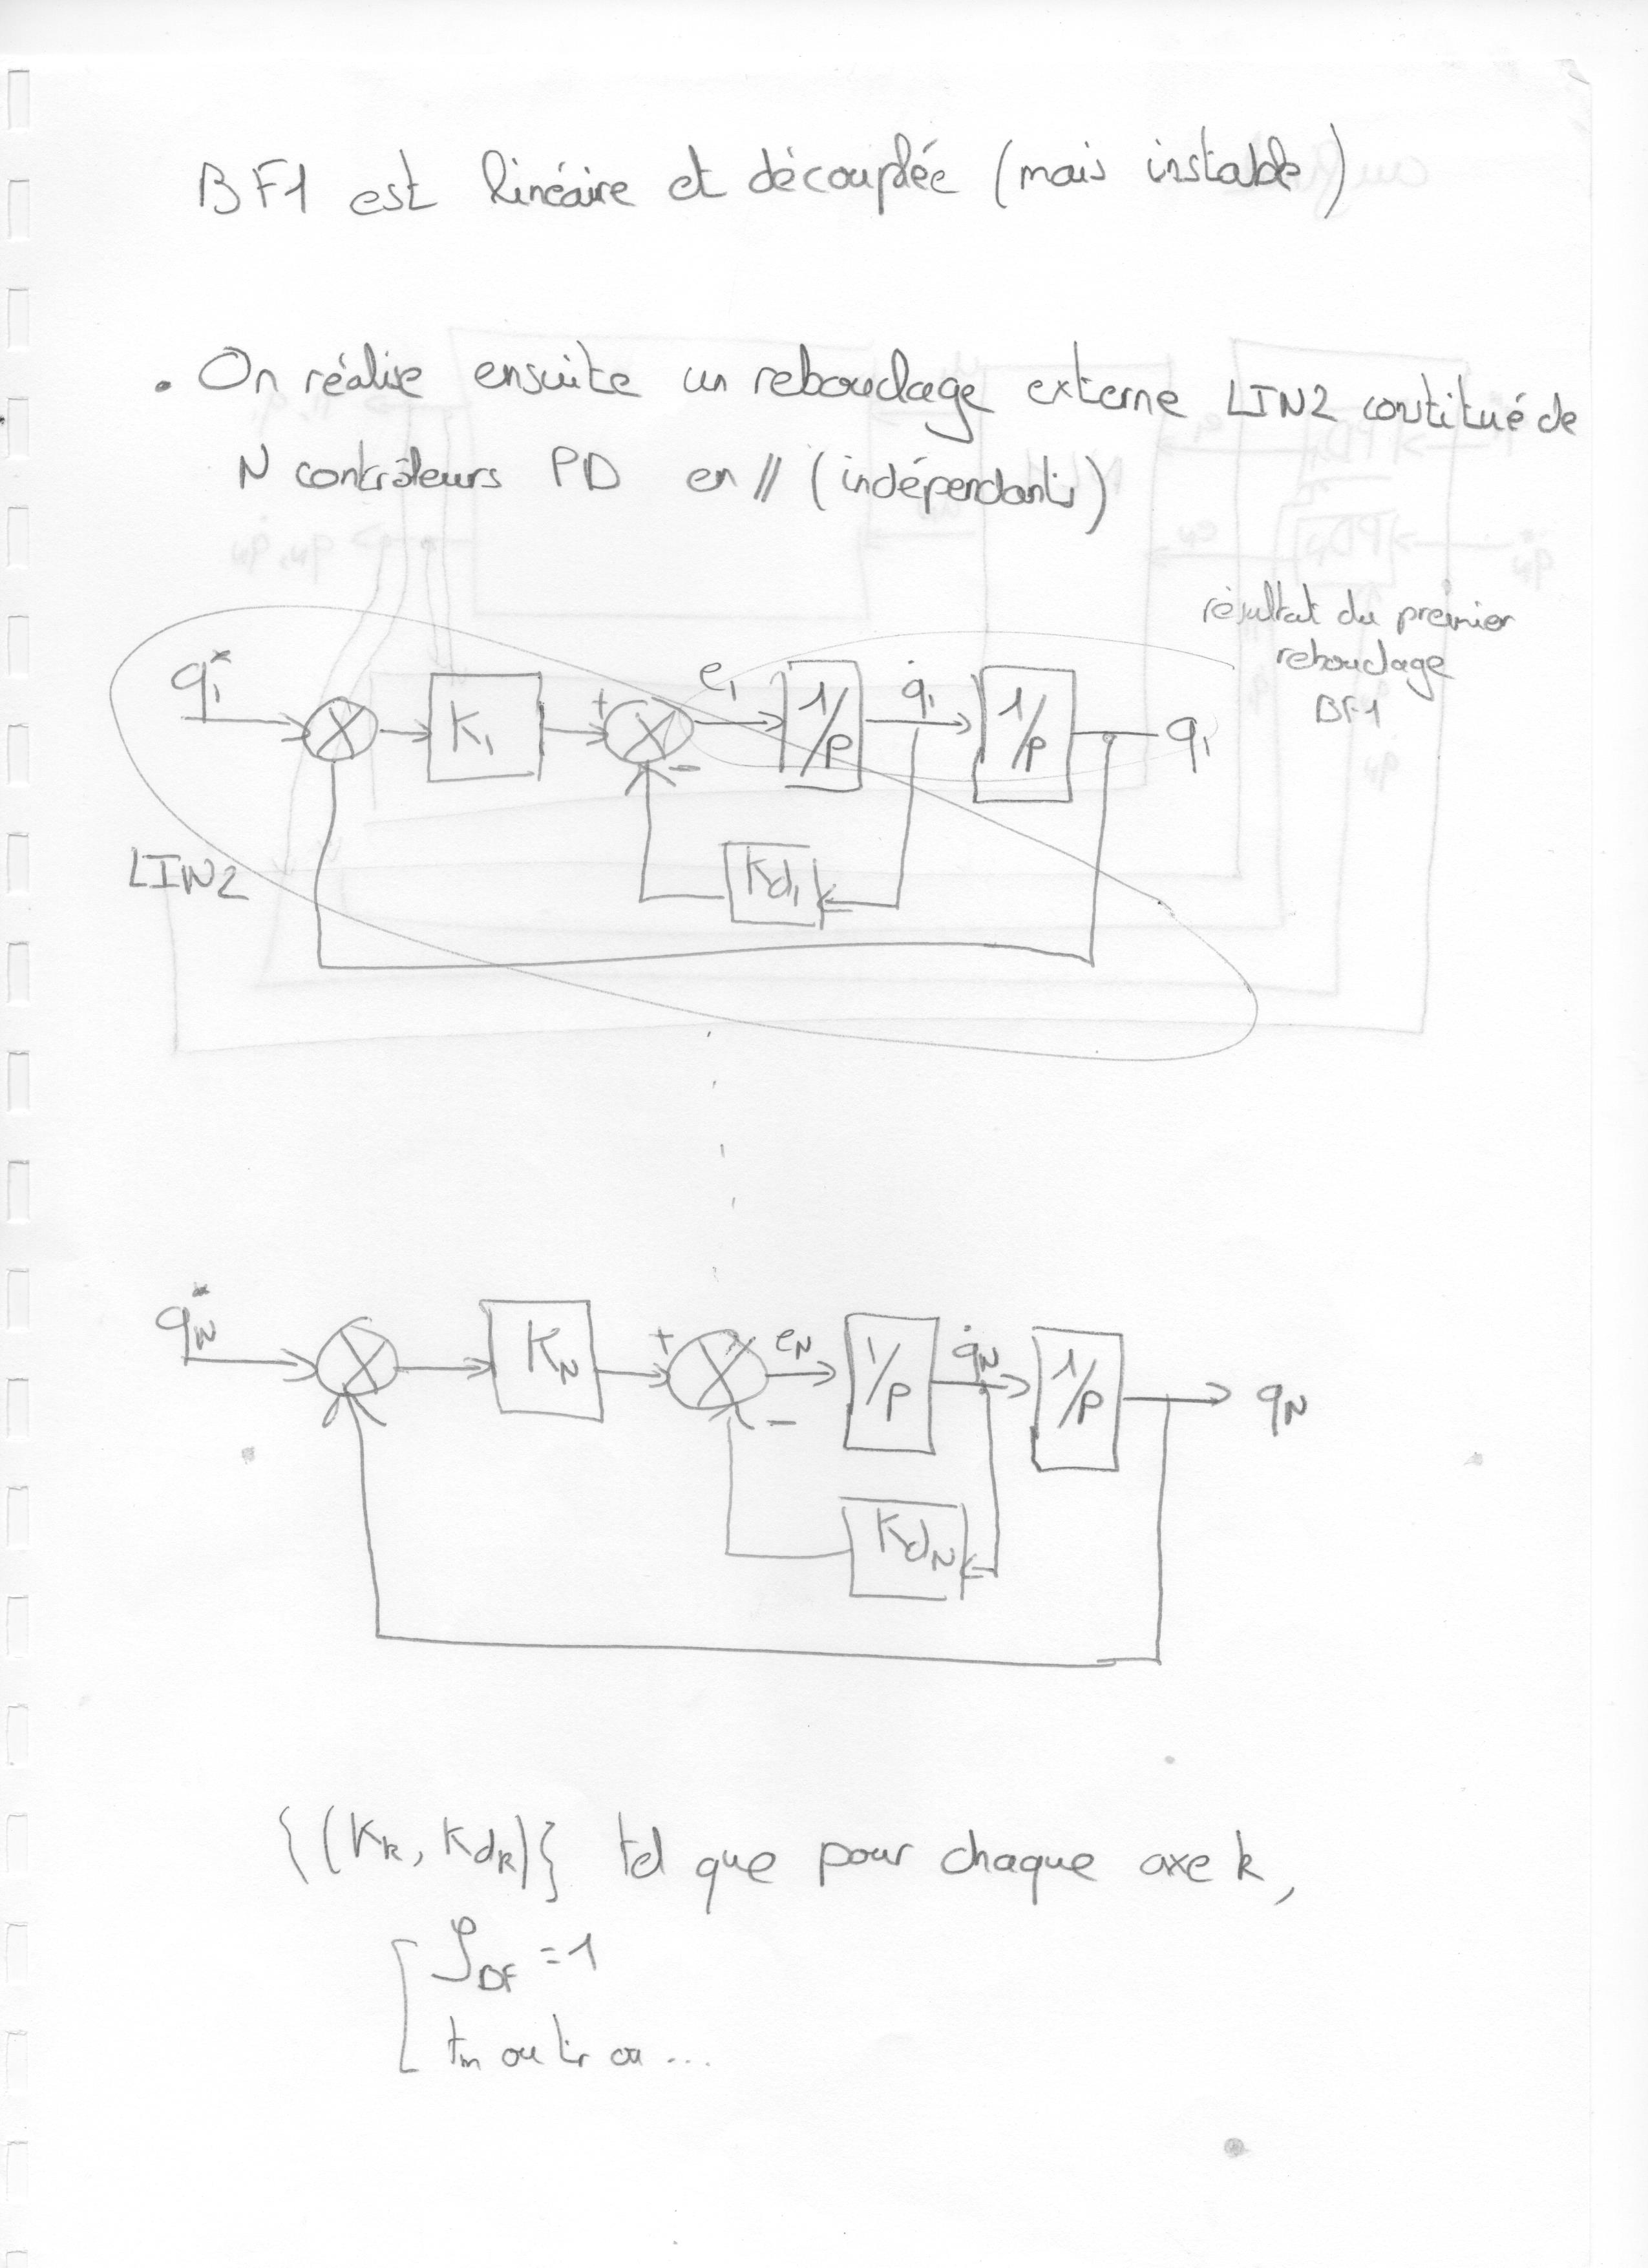 BF1 est linéaire et découplée (mais instable)
• On réalise ensuite un rebouclage externe LIN2 constitué de
N contrôleurs PD en // (indépendants)
résultat du premier
rebouclage
BF1
q₁* K₁ + - e₁ 1/p q̇₁ 1/p q₁
Kd₁
LIN2
qN* KN + - eN 1/p q̇N 1/p qN
KdN
{(Kk, Kdk)} tel que pour chaque axe k,
ζBF = 1
tm ou tr ou ...